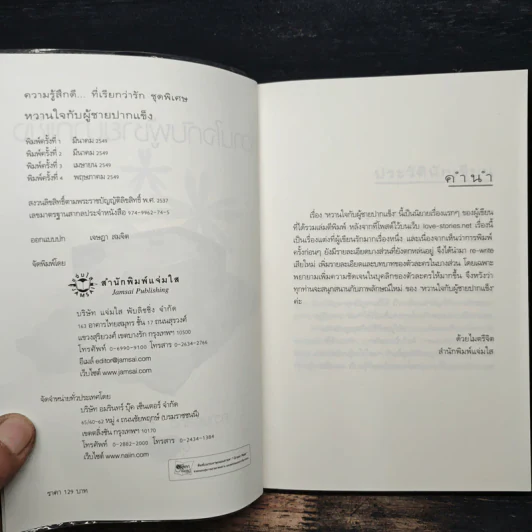 ความรู้สึกดี... ที่เรียกว่ารัก ชุดพิเศษ
หวานใจกับผู้ชายปากแข็ง
พิมพ์ครั้งที่ 1 มีนาคม 2549
พิมพ์ครั้งที่ 2 มีนาคม 2549
พิมพ์ครั้งที่ 3 เมษายน 2549
พิมพ์ครั้งที่ 4 พฤษภาคม 2549
สงวนลิขสิทธิ์ตามพระราชบัญญัติลิขสิทธิ์ พ.ศ. 2537
เลขมาตรฐานสากลประจำหนังสือ 974-9962-74-5
ออกแบบปก เจษฎา สมจิต
จัดพิมพ์โดย
สำนักพิมพ์แจ่มใส
Jamsai Publishing
บริษัท แจ่มใส พับลิชชิ่ง จำกัด
163 อาคารไทยสมุทร ชั้น 17 ถนนสุรวงศ์
แขวงสุริยวงศ์ เขตบางรัก กรุงเทพฯ 10500
โทรศัพท์ 0-6990-9100 โทรสาร 0-2634-2766
อีเมล์ editor@jamsai.com
เว็บไซต์ www.jamsai.com
จัดจำหน่ายทั่วประเทศโดย
บริษัท อมรินทร์ บุ๊ค เซ็นเตอร์ จำกัด
65/60-62 หมู่ 4 ถนนชัยพฤกษ์ (บรมราชชนนี)
เขตตลิ่งชัน กรุงเทพฯ 10170
โทรศัพท์ 0-2882-2000 โทรสาร 0-2434-1384
เว็บไซต์ www.naiin.com
ราคา 129 บาท
คำนำ
เรื่อง 'หวานใจกับผู้ชายปากแข็ง' นี้เป็นนิยายเรื่องแรกๆ ของผู้เขียน
ที่ได้รวมเล่มตีพิมพ์ หลังจากที่โพสต์ไว้บนเว็บ love-stories.net เรื่องนี้
เป็นเรื่องแต่งที่ผู้เขียนรักมากเรื่องหนึ่ง และเนื่องจากเห็นว่าการพิมพ์
ครั้งก่อนๆ ยังมีรายละเอียดบางส่วนที่ยังตกหล่นอยู่ จึงได้นำมา re-write
เสียใหม่ เพิ่มรายละเอียดและบทบาทของตัวละครในบางส่วน โดยเฉพาะ
พยายามเพิ่มความชัดเจนในบุคลิกของตัวละครให้มากขึ้น จึงหวังว่า
ทุกท่านจะสนุกสนานกับภาพลักษณ์ใหม่ ของ 'หวานใจกับผู้ชายปากแข็ง'
ค่ะ
ด้วยไมตรีจิต
สำนักพิมพ์แจ่มใส